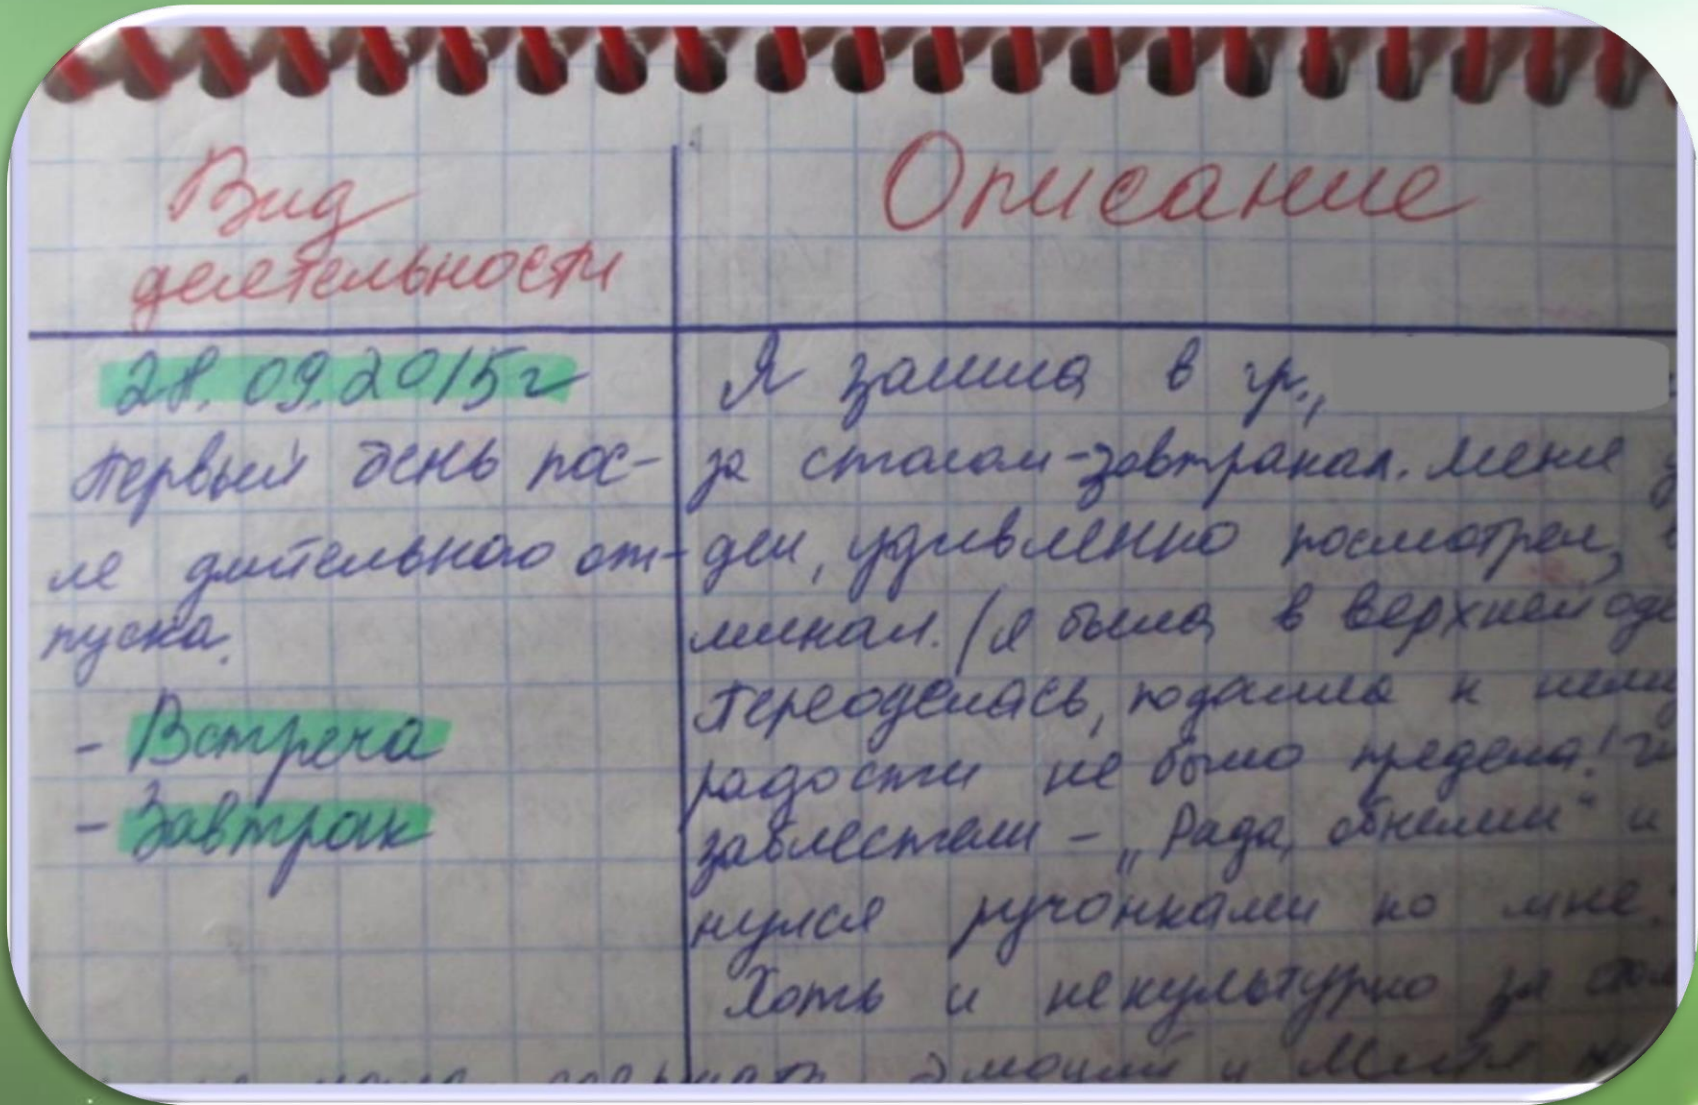 Вид
деятельности
Описание
28.09.2015г
Первый день пос-
ле длительного от-
пуска.
- Встреча
- Завтрак
Я зашла в гр.,
за столом-завтракал. Меня у
дел, удивленно посмотрел,
мигал. (я была в верхней оде
Переоделась, подошла к нему
радости не было предела!
заблестели - „Рада, обними“ и
нулся ручонками ко мне.
Хоть и не культурно за стол
эмоций и Митя